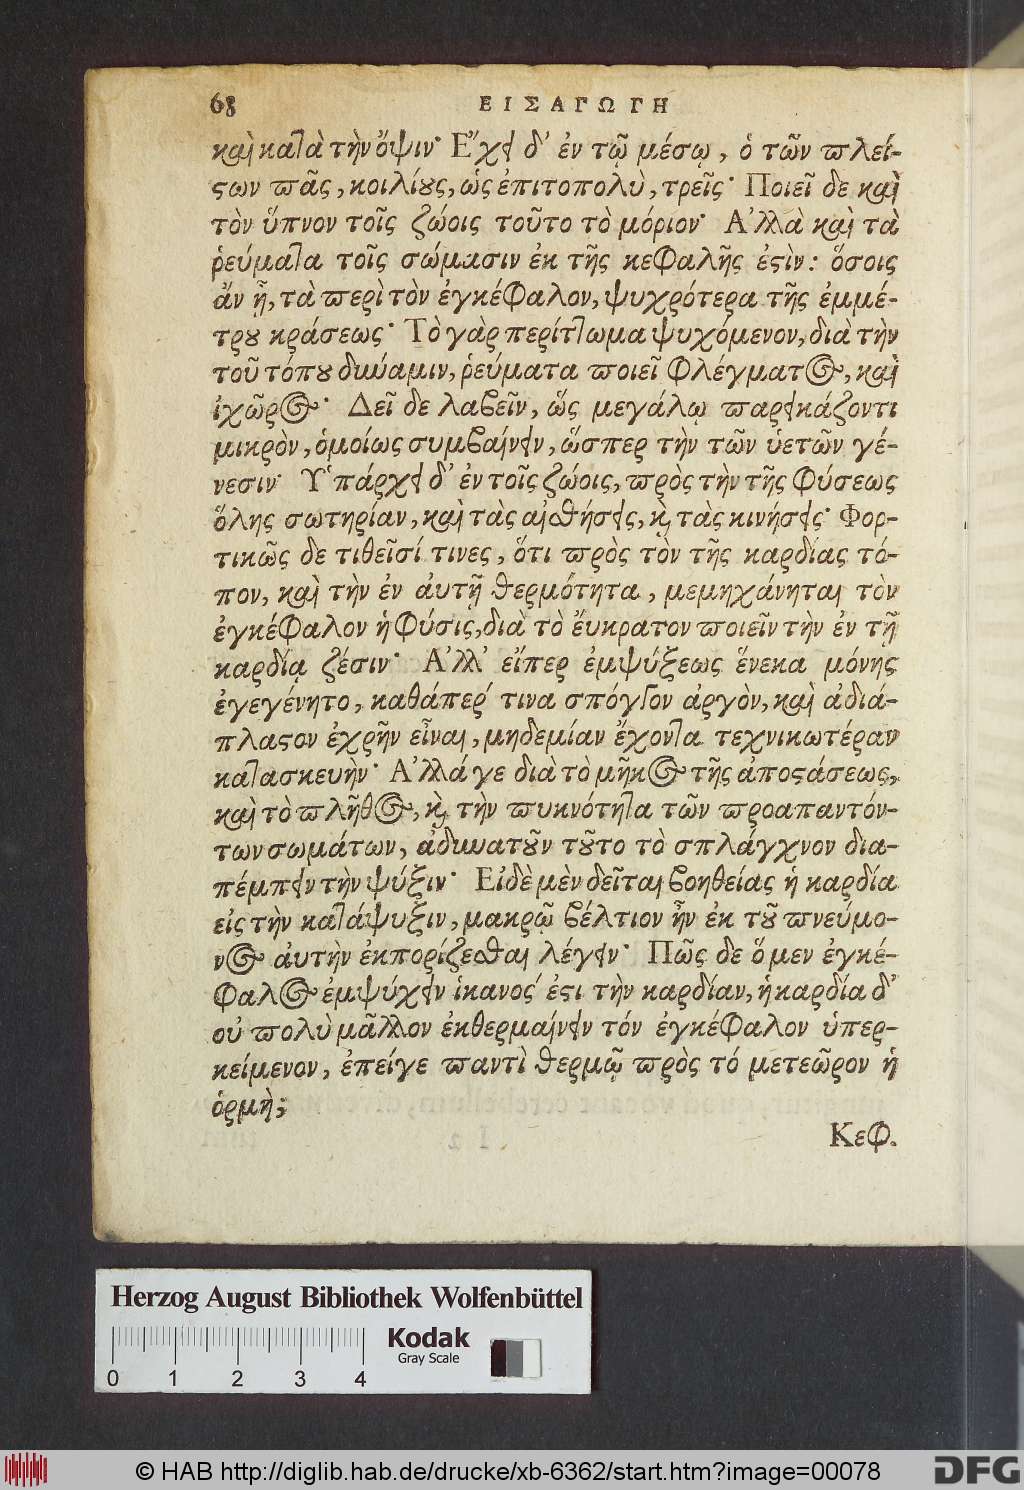 68 ΕΙΣΑΓΩΓΗ
καὶ κατὰ τὴν ὄψιν· Ἔχει δ᾽ ἐν τῷ μέσῳ, ὁ τῶν πλεί-
ϛων πᾶς, κοιλίȣς, ὡς ἐπιτοπολὺ, τρεῖς· Ποιεῖ δε καὶ
τὸν ὕπνον τοῖς ζώοις τοῦτο τὸ μόριον· Ἀλλὰ καὶ τὰ
ῥεύματα τοῖς σώμασιν ἐκ τῆς κεφαλῆς ἐϛὶν: ὅσοις
ἄν ᾖ, τὰ περὶ τὸν ἐγκέφαλον, ψυχρότερα τῆς ἐμμέ-
τρȣ κράσεως· Τὸ γὰρ περίττωμα ψυχόμενον, διὰ τὴν
τοῦ τόπȣ δύναμιν, ῥεύματα ποιεῖ φλέγματος, καὶ
ἰχῶρος· Δεῖ δε λαβεῖν, ὥς μεγάλῳ παρεικάζοντι
μικρὸν, ὁμοίως συμβαίνειν, ὥσπερ τὴν τῶν ὑετῶν γέ-
νεσιν· Ὑπάρχει δ᾽ ἐν τοῖς ζώοις, πρὸς τὴν τῆς φύσεως
ὅλης σωτηρίαν, καὶ τὰς αἰσθήσεις, κὶ τὰς κινήσεις· Φορ-
τικῶς δε τιθεῖσί τινες, ὅτι πρὸς τὸν τῆς καρδίας τό-
πον, καὶ τὴν ἐν ἀυτῇ θερμότητα, μεμηχάνηται τὸν
ἐγκέφαλον ἡ φύσις, διὰ τὸ ἔυκρατον ποιεῖν τὴν ἐν τῇ
καρδίᾳ ζέσιν· Ἀλλ᾽ εἴπερ ἐμψύξεως ἕνεκα μόνης
ἐγεγένητο, καθάπερ τινα σπόγγον ἀργὸν, καὶ ἀδιά-
πλαϛον ἐχρῆν εἶναι, μηδεμίαν ἔχοντα τεχνικωτέραν
κατασκευὴν· Ἀλλά γε διὰ τὸ μῆκος τῆς ἀποϛάσεως,
καὶ τὸ πλῆθος, κὶ τὴν πυκνότητα τῶν προαπαντόν-
των σωμάτων, ἀδυνατοῦν τȣ͂το τὸ σπλάγχνον δια-
πέμπειν τὴν ψύξιν· Εἰδὲ μὲν δεῖται βοηθείας ἡ καρδία
εἰς τὴν κατάψυξιν, μακρῷ βέλτιον ἦν ἐκ τȣ͂ πνεύμο-
νος ἀυτὴν ἐκπορίζεσθαι λέγειν· Πῶς δε ὅ μεν ἐγκέ-
φαλος ἐμψύχειν ἱκανός ἐϛι τὴν καρδίαν, ἡ καρδία δ᾽
οὐ πολὺ μᾶλλον ἐκθερμαίνειν τόν ἐγκέφαλον ὑπερ-
κείμενον, ἐπείγε παντὶ θερμῷ πρὸς τό μετεῶρον ἡ
ὁρμὴ;
Κεφ.
Herzog August Bibliothek Wolfenbüttel
Kodak
Gray Scale
0 1 2 3 4
© HAB http://diglib.hab.de/drucke/xb-6362/start.htm?image=00078
DFG